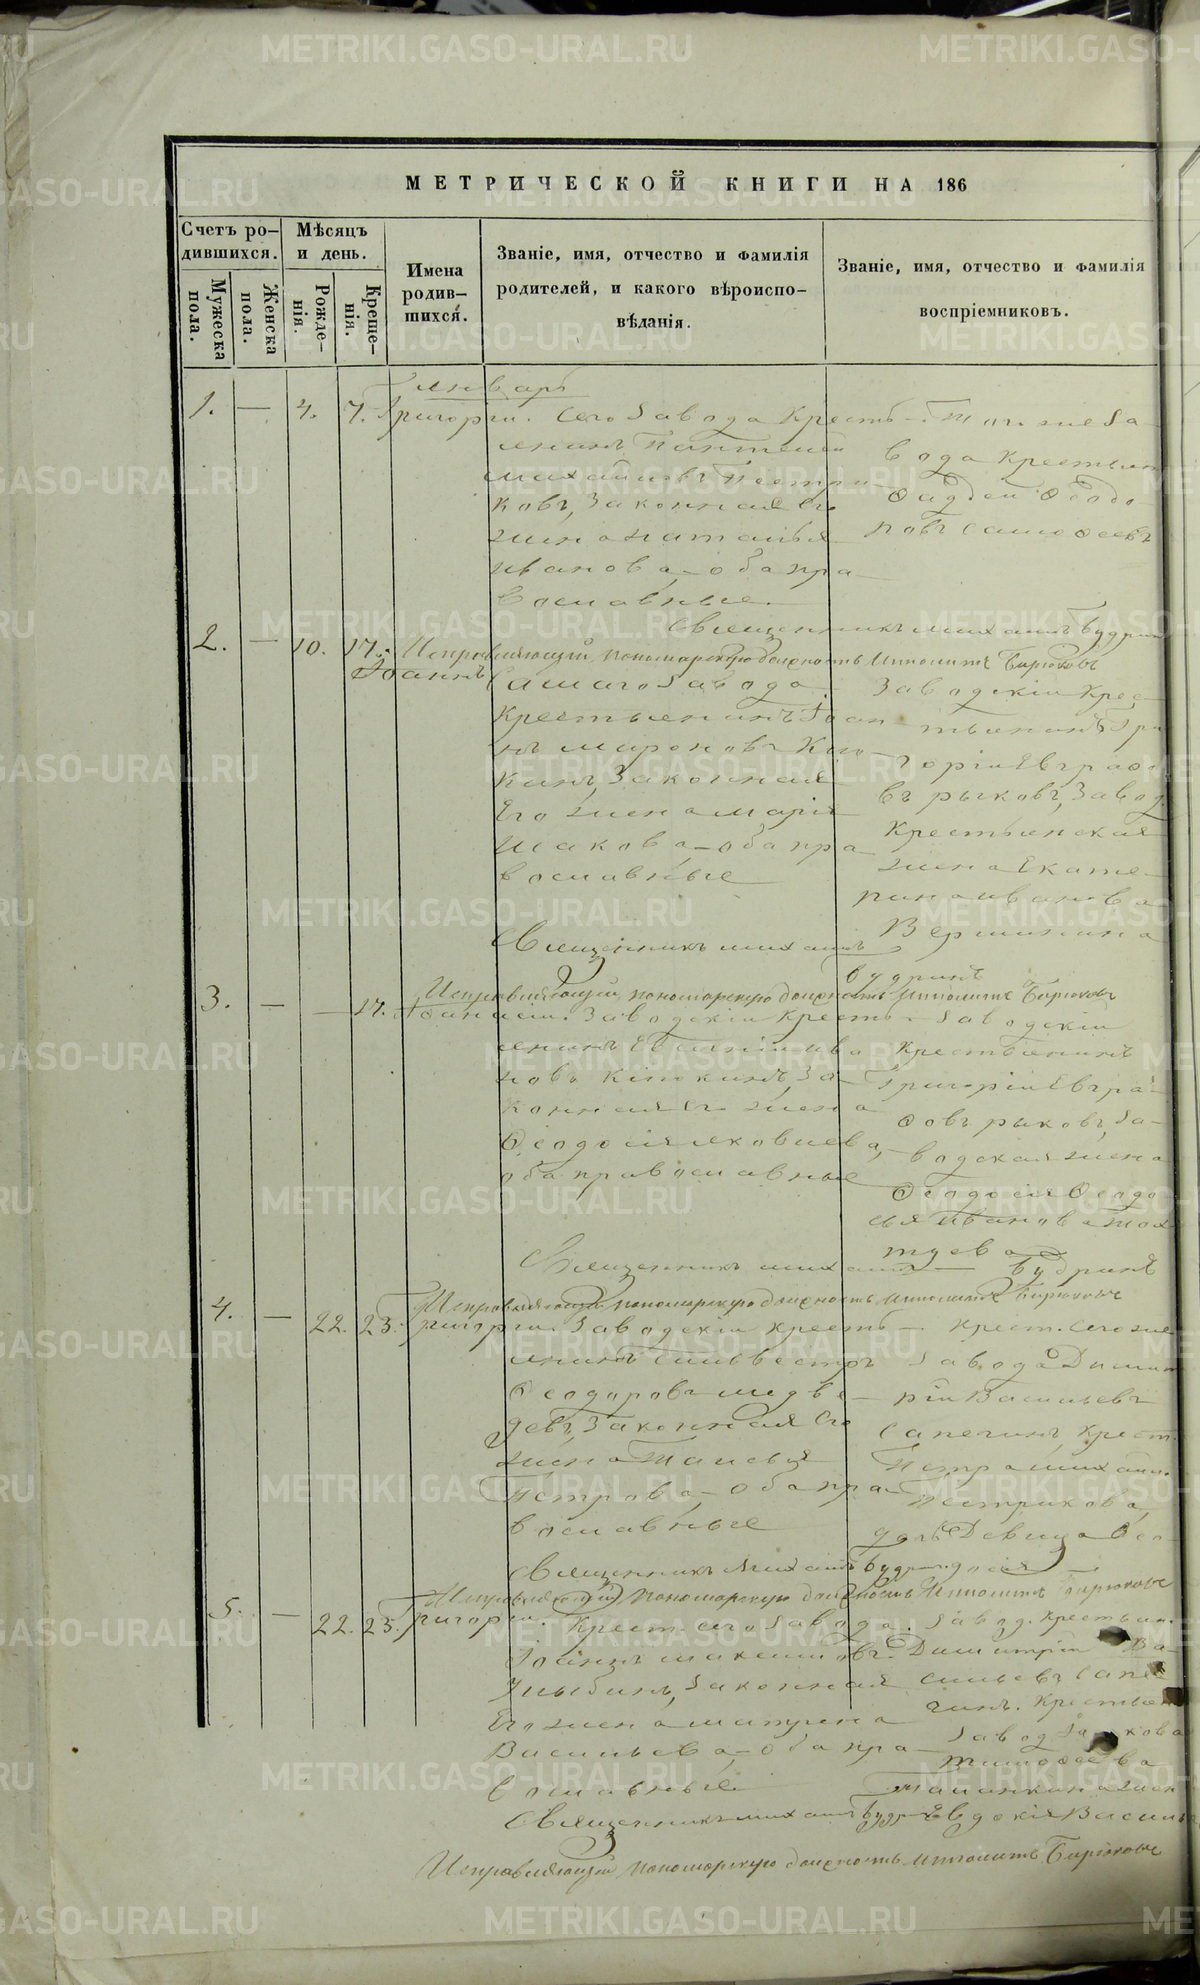 МЕТРИЧЕСКОЙ КНИГИ НА 186
Счетъ ро-
дившихся.
Мѣсяцъ
и день.
Мужеска
пола.
Женска
пола.
Рожде-
нія.
Креще-
нія.
Имена
родив-
шихся.
Званіе, имя, отчество и фамилія
родителей, и какого вѣроиспо-
вѣданія.
Званіе, имя, отчество и фамилія
воспріемниковъ.
Январь
1. — 4. 7. Григорій. Сего завода Кресть-
янинъ Пантелей
Михайловъ Пестри-
ковъ, Законная Его
жена Наталья
Иванова, оба пра-
вославные.
Того же За-
вода Крестьян
Фаддей
Священникъ Михаилъ Будрин
Исправляющій пономарскую должность Ипполитъ Бирюковъ
2. — 10. 17. Іоаннъ
Самаго Завода
Крестьянинъ Іоан-
нъ Мироновъ Кило-
Законная
Его жена Марія
Исакова, оба пра-
вославные
Заводскій Крес-
тьянинъ Гри-
горій Евграфо-
въ Рыковъ, Завод.
Крестьянская
жена Екате-
рина Иванова
Вершинина
Священникъ Михаилъ
Будринъ
Исправляющій пономарскую должность Ипполитъ Бирюковъ
3. — — 17. Афанасій. Заводскій Кресть-
янинъ Ива-
новъ За-
конная Его жена
Феодосія Яковлева,
оба православные
Заводскій
Крестьянинъ
Григорій Евгра-
фовъ Рыковъ, За-
водская жена
Феодосія Феодо-
сья Иванова
Священникъ Михаилъ Будринъ
Исправляющій пономарскую должность Ипполитъ Бирюковъ
4. — 22. 23. Григорій. Заводскій Кресть-
янинъ Сильвестръ
Феодоровъ Медвѣ-
девъ, Законная Его
жена Татьяна
Петрова, оба пра-
вославные
Крест. Сего же
Завода Димит-
рій Васильевъ
Сапегинъ, Крест.
Петра Михаил.
Пестрикова,
дочь Девица Фео-
досія
Священникъ Михаилъ Будрин
Исправляющій пономарскую должность Ипполитъ Бирюковъ
5. — 22. 23. Григорій. Крест. Сего Завода
Іоаннъ Максимовъ
Законная
Его жена Матрена
Васильева, оба пра-
вославные
Завод. Крестьян.
Димитрій Ва-
сильевъ Сапе-
гинъ. Крестьян
Завод
Тимофеева
жен
Евдокія Василь
Священникъ Михаилъ Будрин
Исправляющій пономарскую должность Ипполитъ Бирюковъ
METRIKI.GASO-URAL.RU